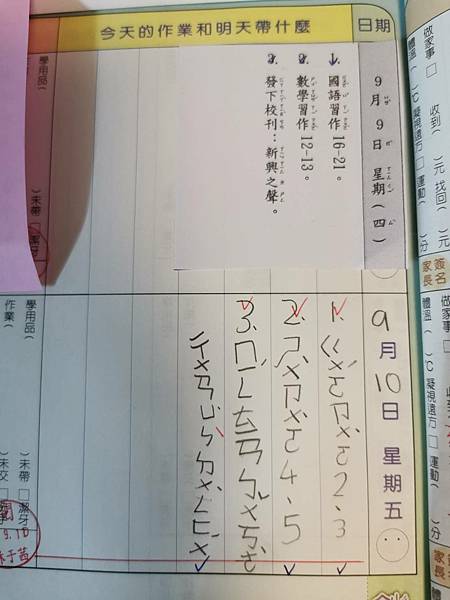 日期
今天的作業和明天帶什麼
9月9日 星期(四)
1. 國語習作 16-21。
2. 數學習作 12-13。
3. 發下校刊：新興之聲。
學用品( )未帶 潔牙
9月10日 星期五
1. ㄍㄨㄛㄗㄨㄛ2、3
2. ㄕㄨㄗㄨㄛ4、5
3.
ㄔㄨㄢㄩㄣㄉㄨㄥㄈㄨ
學用品( )未帶 潔牙
作業( )未交
9.10
做家事 收到( )元 找回( )元
體溫( )℃ 凝視遠方 運動( )分
家長簽名
做家事
體溫( )℃ 凝視遠方 運動( )分
家長